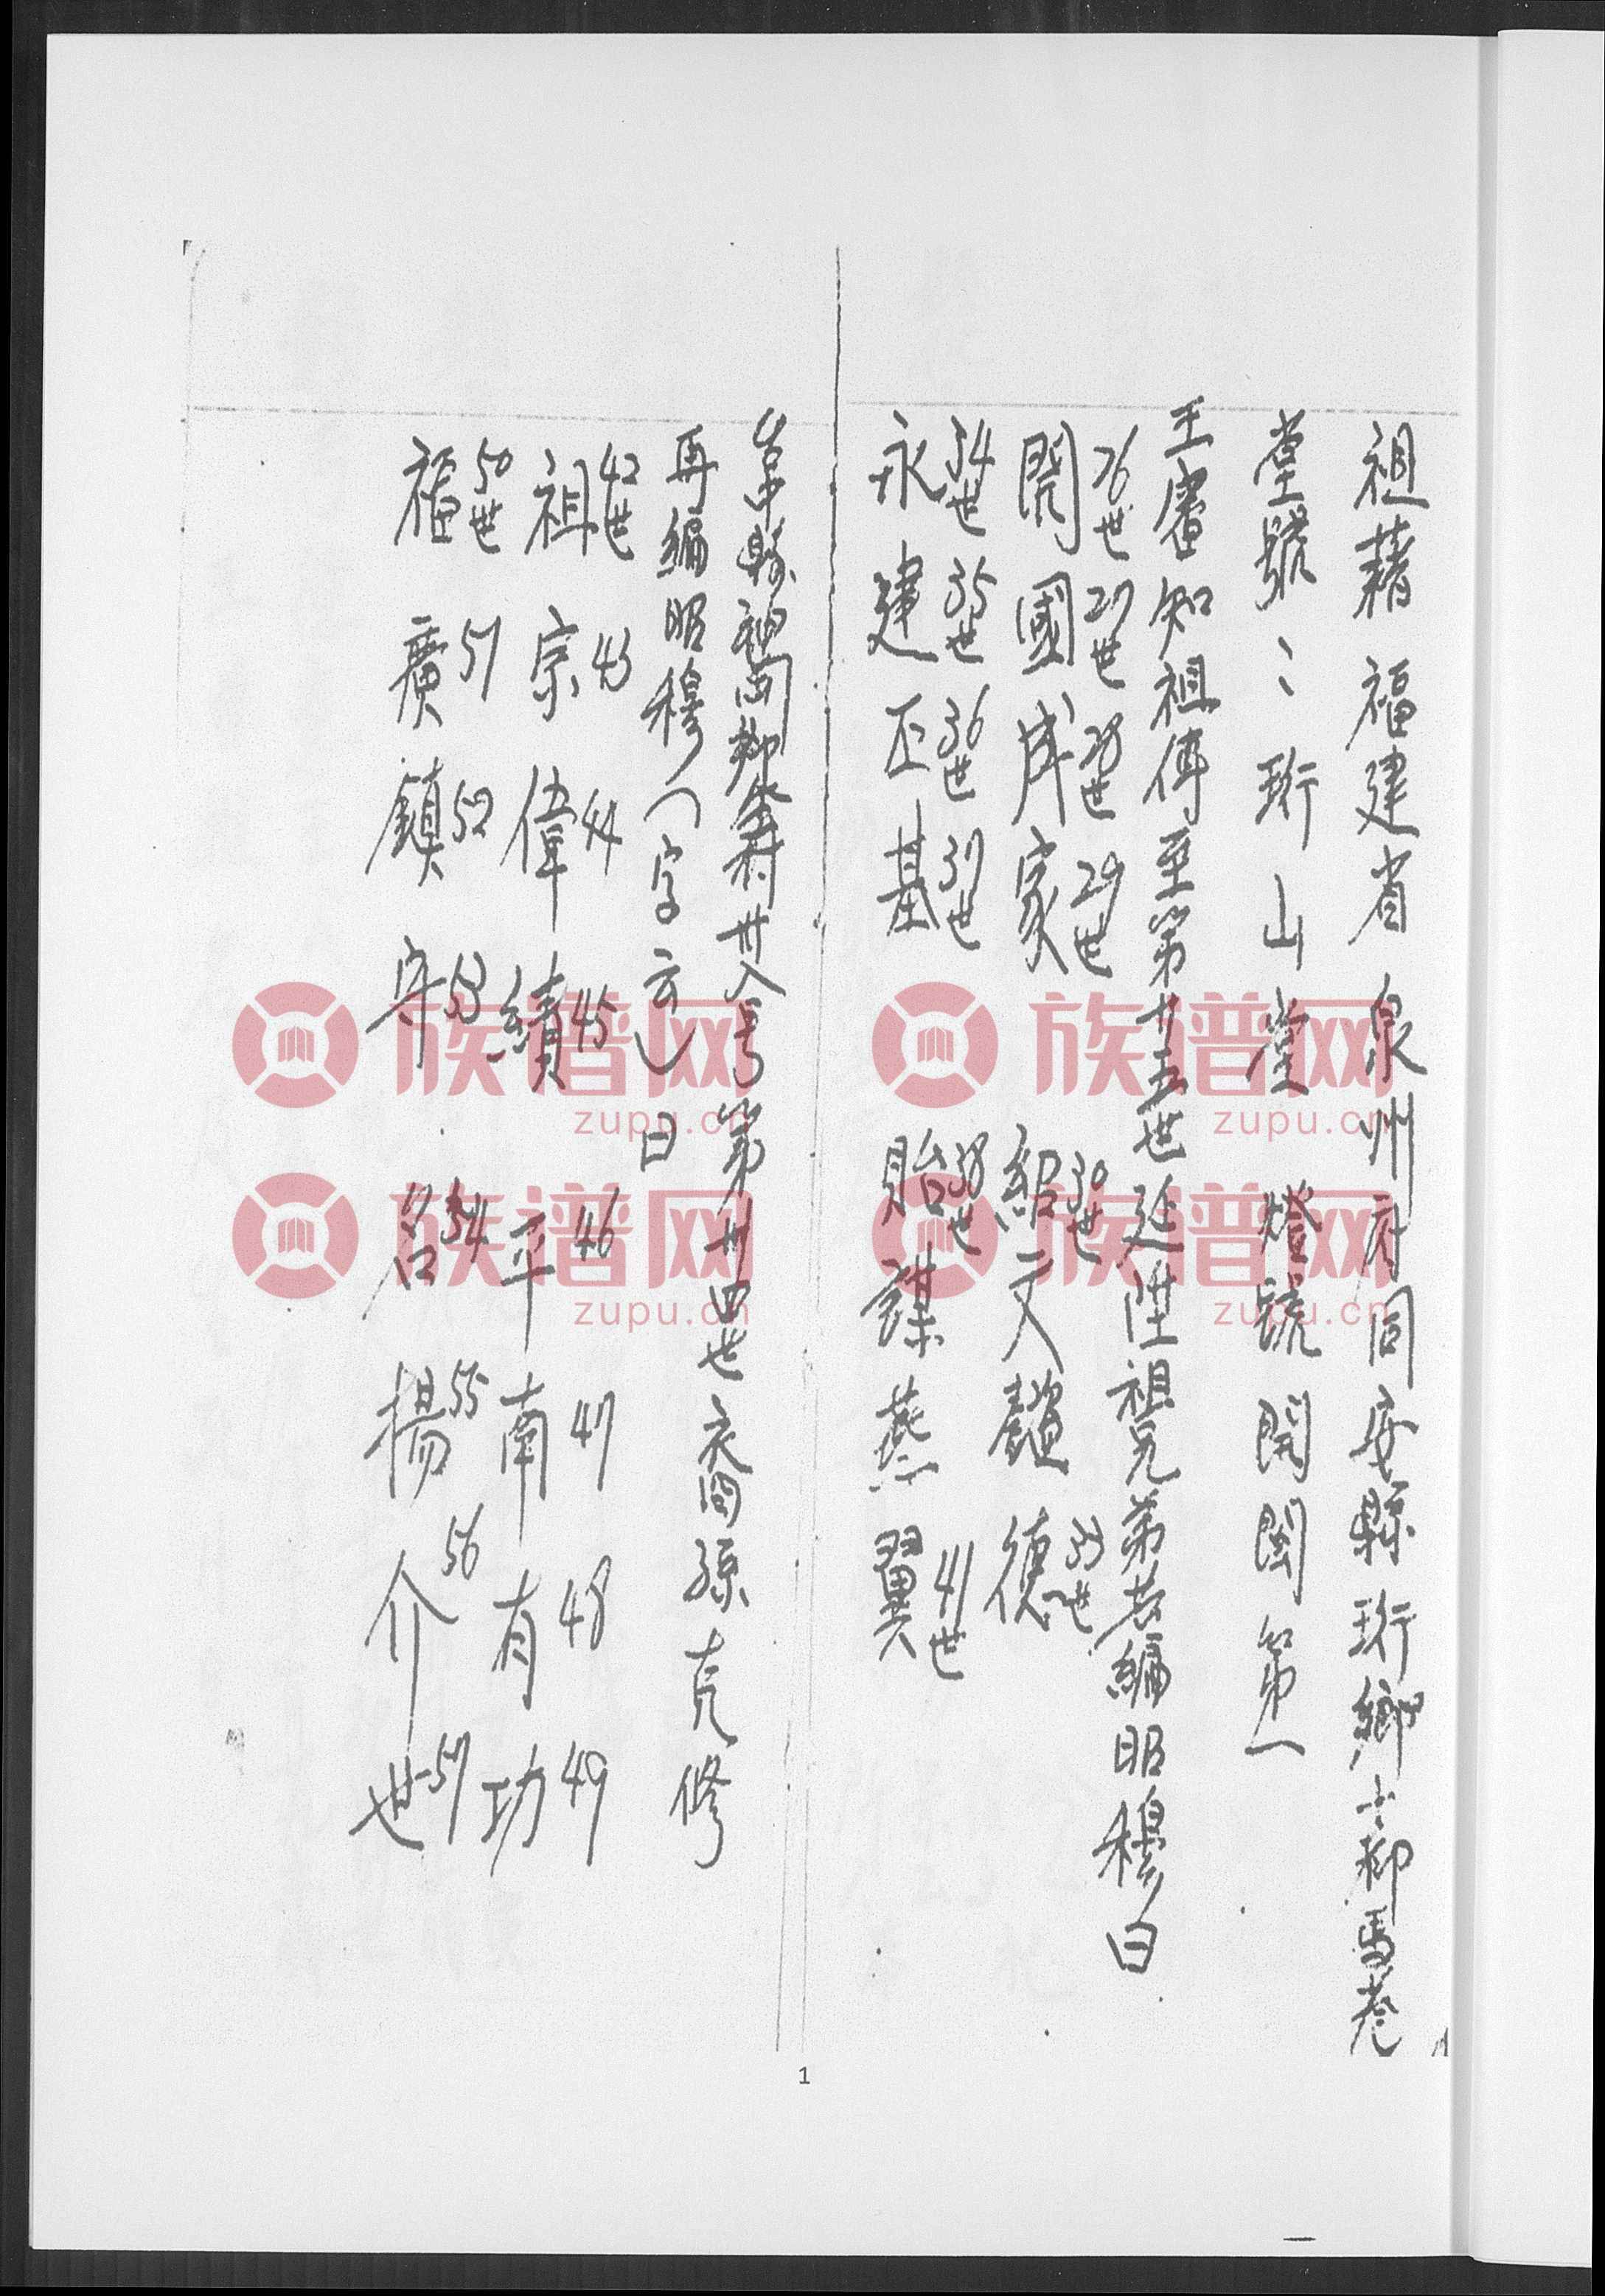 祖藉 福建省 泉州府同安縣珩鄉士柳馬巷
堂號:珩山堂 燈號開閩第一
王睿知祖傳至第廿五世延陞祖兄弟若編昭穆曰
26世 27世 28世 29世 30世 33世
開國成家 紹文懿德
34世 35世 36世 37世 38世 41世
永建丕基 貽謀燕翼
台中縣神岡鄉 村廿八号第卅四世裔孫克修
再編昭穆(字云)曰
42世 43 44 45 46 47 48 49
祖宗偉績平南有功
50世 51 52 53 54 55 56 57
福廣鎮守名揚介世
族谱网
zupu.cn
族谱网
zupu.cn
族谱网
zupu.cn
族谱网
zupu.cn
1